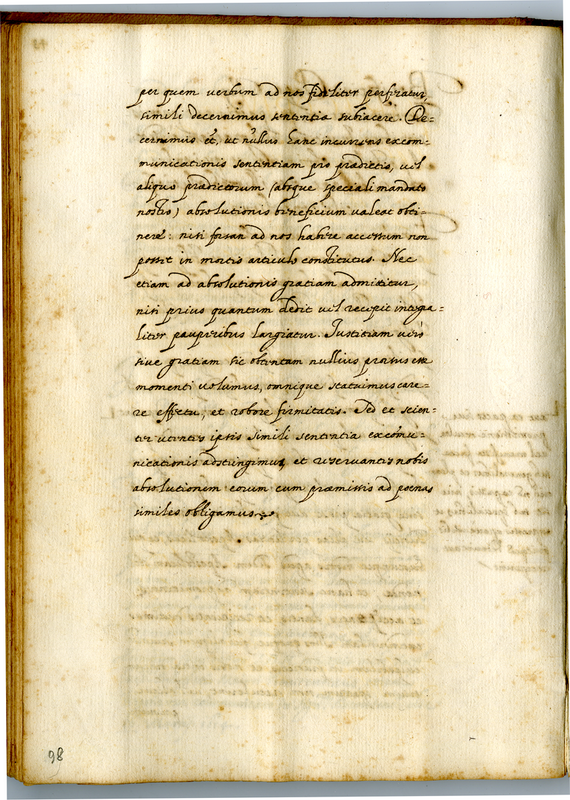 per quem verbum ad nos fideliter perferatur,
simili decernimus sententia subiacere. De=
cernimus et, ut nullus hanc incurrens excom=
municationis sententiam pro prædictis, vel
aliquo prædictorum (absque speciali mandato
nostro) absolutionis beneficium valeat obti=
nere: nisi forsan ad nos habere accessum non
possit in mortis articulo constitutus. Nec
etiam ad absolutionis gratiam admittitur,
nisi prius quantum dedit vel recepit integra=
liter pauperibus largiatur. Iustitiam vero
sive gratiam sic obtentam nullius prorsus esse
momenti volumus, omnique statuimus care=
re effectu, et robore firmitatis. Sed et scien=
ter utentes ipsis simili sententia excõmu=
nicationis adstringimus, et reservantes nobis
absolutionem eorum cum præmissis ad poenas
similes obligamus.
98